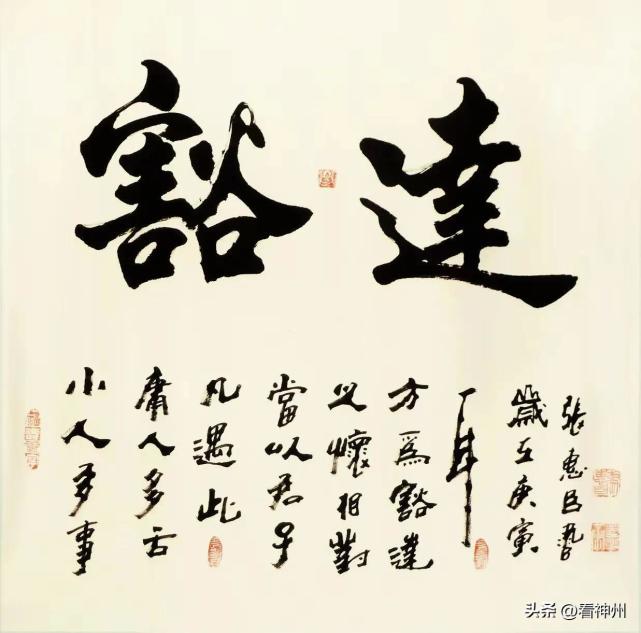 豁達
小人多事
庸人多舌
凡遇此
當以君子
之懷相對
方爲豁達
耳
歲在庚寅
張惠臣書
头条 @看神州